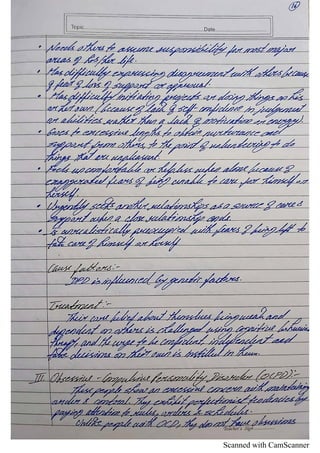 16
Topic
Date
• Needs others to assume responsibility for most major
areas of his/her life.
• Has difficulty expressing disagreement with others because
of fear of loss of support or approval.
• Has difficulty initiating projects or doing things on his
or her own (because of lack of self-confidence in judgement
or abilities rather than a lack of motivation or energy)
• Goes to excessive lengths to obtain nurturance and
support from others, to the point of volunteering to do
things that are unpleasant.
• Feels uncomfortable or helpless when alone because of
exaggerated fears of being unable to care for himself or
herself.
• Urgently seeks another relationships as a source of care &
support when a close relationship ends.
• Is unrealistically preoccupied with fears of being left to
take care of himself or herself.
Cause factors:-
DPD is influenced by genetic factors.
Treatment:-
Their core belief about themselves being weak and
dependent on others is challenged using cognitive behaviour
therapy and the urge to be confident, independent and
take decisions on their own is instilled in them.
III. Obsessive-Compulsive Personality Disorder (OCPD):-
These people show an excessive concern with maintaining
order & control. They exhibit perfectionist tendencies by
paying attention to rules, orders & schedules.
Unlike people with OCD, they do not have obsessions
Teacher's Sign
Scanned with CamScanner